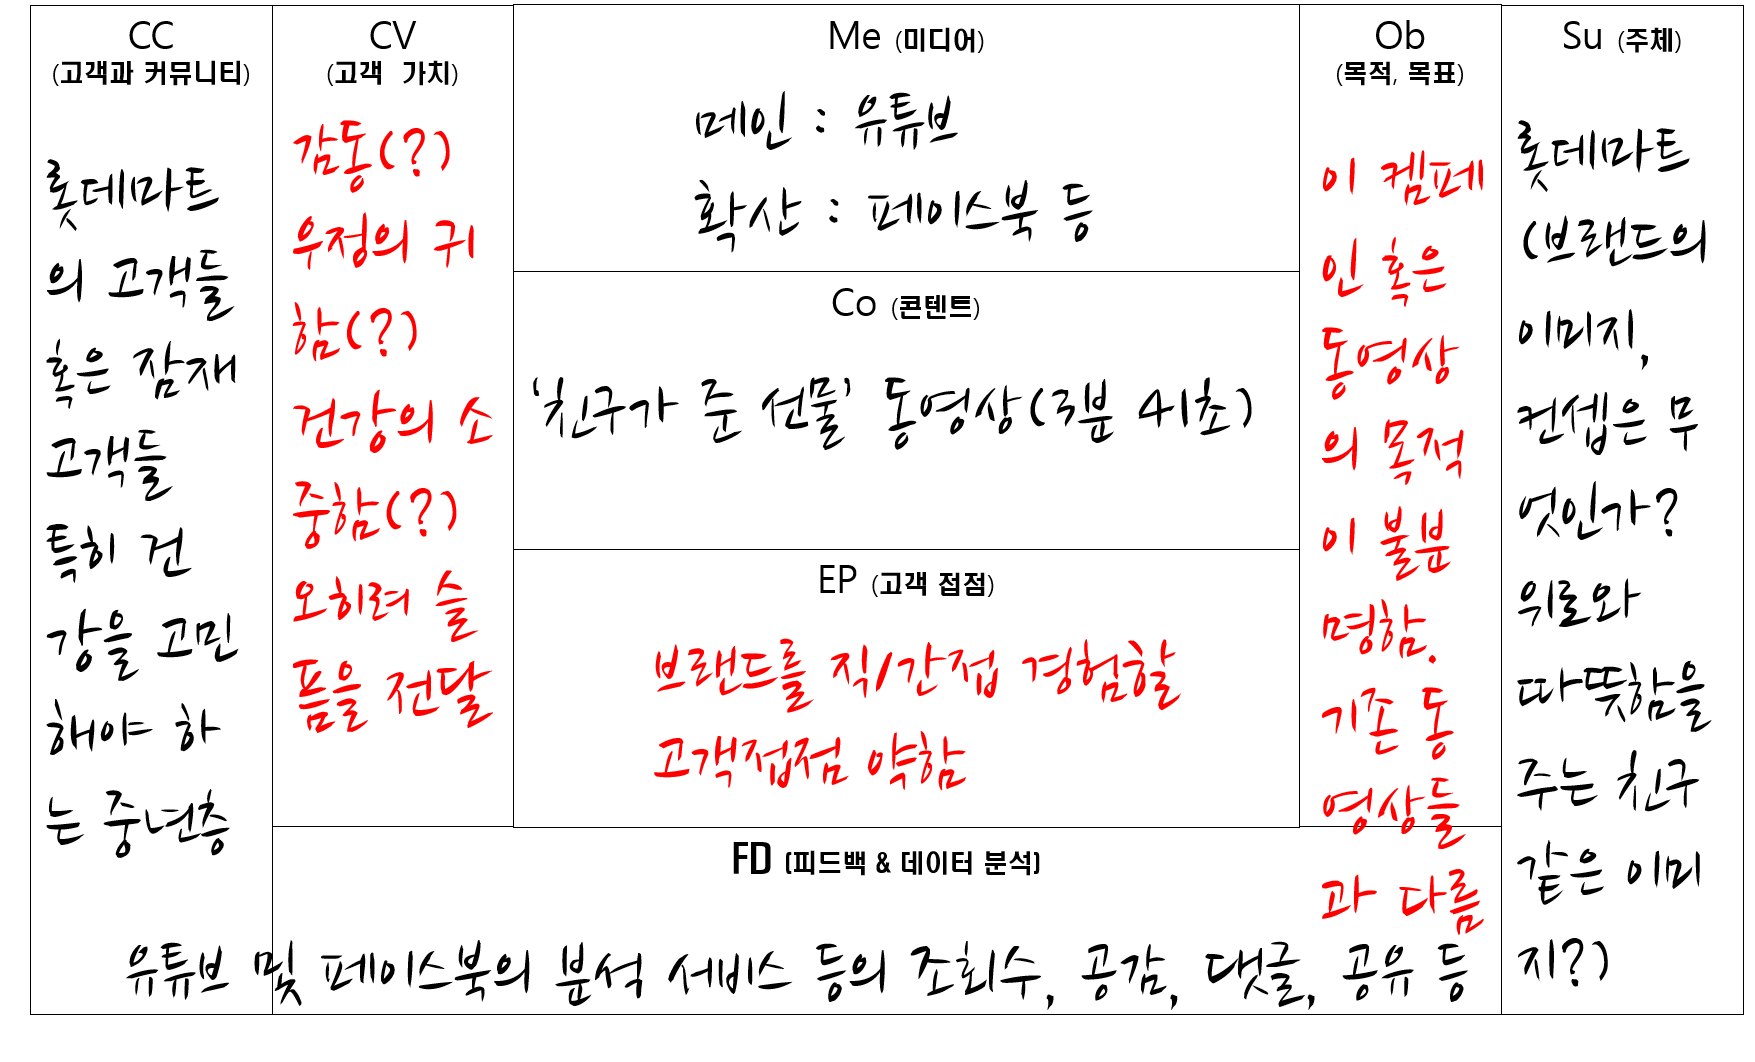 CC
(고객과 커뮤니티)
롯데마트
의 고객들
혹은 잠재
고객들
특히 건
강을 고민
해야 하
는 중년층
CV
(고객 가치)
감동(?)
우정의 귀
함(?)
건강의 소
중함(?)
오히려 슬
픔을 전달
Me (미디어)
메인 : 유튜브
확산 : 페이스북 등
Co (콘텐트)
‘친구가 준 선물’ 동영상(3분 41초)
EP (고객 접점)
브랜드를 직/간접 경험할
고객접점 약함
Ob
(목적, 목표)
이 켐페
인 혹은
동영상
의 목적
이 불분
명함.
기존 동
영상들
과 다름
Su (주체)
롯데마트
(브랜드의
이미지,
컨셉은 무
엇인가?
위로와
따뜻함을
주는 친구
같은 이미
지?)
FD (피드백 & 데이터 분석)
유튜브 및 페이스북의 분석 서비스 등의 조회수, 공감, 댓글, 공유 등